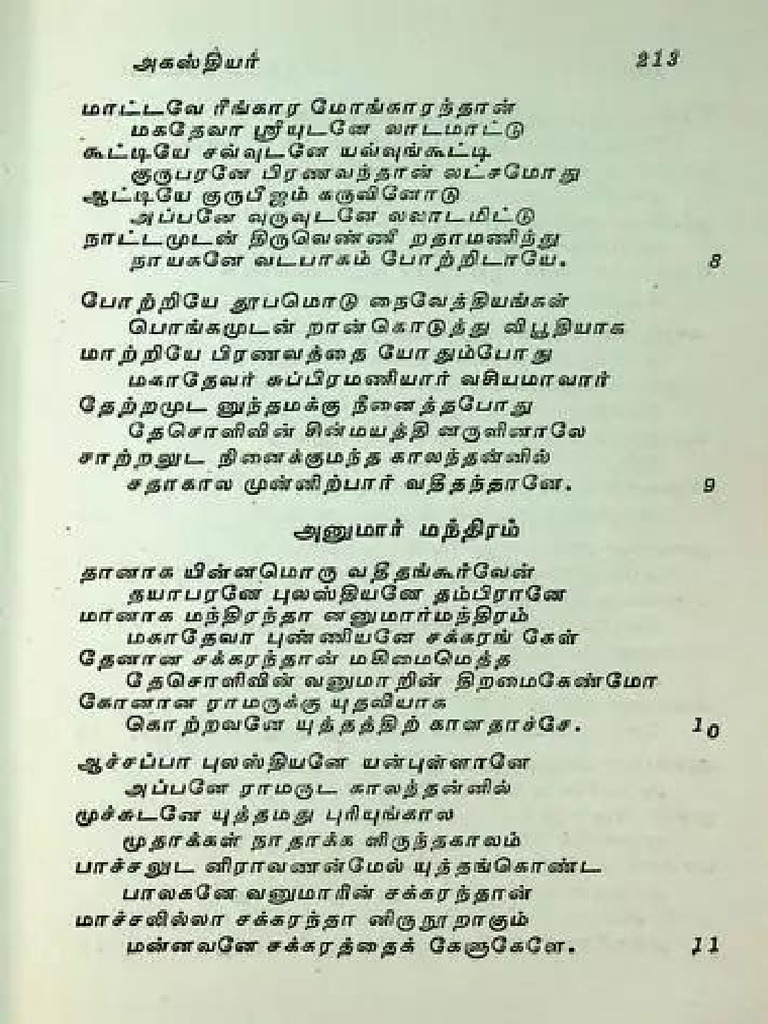 அகஸ்தியர் 213
மாட்டவே ரீங்கார மோங்காரந்தான்
மகதேவா ஸ்ரீயுடனே லாடமாட்டு
கூட்டியே சவ்வுடனே யவ்வுங்கூட்டி
குருபரனே பிரணவந்தான் லட்சமோது
ஆட்டியே குருபீஜம் கருவினோடு
அப்பனே வுருவுடனே லலாடமிட்டு
நாட்டமுடன் திருவெண்ணீ றதாமணிந்து
நாயகனே வடபாகம் போற்றிடாயே. 8
போற்றியே தூபமொடு நைவேத்தியங்கள்
பொங்கமுடன் றான்கொடுத்து விபூதியாக
மாற்றியே பிரணவத்தை யோதும்போது
மகாதேவர் சுப்பிரமணியார் வசியமாவார்
தேற்றமுட னுந்தமக்கு நீனைத்தபோது
தேசொளிவின் சின்மயத்தி னருளினாலே
சாற்றலுட நினைக்குமந்த காலந்தன்னில்
சதாகால முன்னிற்பார் வதீதந்தானே. 9
அனுமார் மந்திரம்
தானாக யின்னமொரு வதீதங்கூர்வேன்
தயாபரனே புலஸ்தியனே தம்பிரானே
மானாக மந்திரந்தா னனுமார்மந்திரம்
மகாதேவா புண்ணியனே சக்கரங் கேள்
தேனான சக்கரந்தான் மகிமைமெத்த
தேசொளிவின் வனுமாறின் திறமைகேண்மோ
கோனான ராமருக்கு யுதவியாக
கொற்றவனே யுத்தத்திற் கானதாச்சே. 10
ஆச்சப்பா புலஸ்தியனே யன்புள்ளானே
அப்பனே ராமருட காலந்தன்னில்
மூச்சுடனே யுத்தமது புரியுங்கால
முதாக்கள் நாதாக்க ளிருந்தகாலம்
பாச்சலுட னிராவணன்மேல் யுத்தங்கொண்ட
பாலகனே வனுமாரின் சக்கரந்தான்
மாச்சலில்லா சக்கரந்தா னிருநூறாகும்
மன்னவனே சக்கரத்தைக் கேளுகேளே. 11